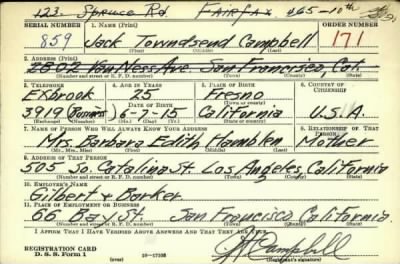 123 Spruce Rd Fairfax 465-10th
SERIAL NUMBER 1. NAME (Print) ORDER NUMBER
859 Jack Townsend Campbell 171
2. ADDRESS (Print)
2802 Van Ness Ave. San Francisco, Cal.
(Number and street or R. F. D. number) (Town) (County) (State)
3. TELEPHONE 4. AGE IN YEARS 5. PLACE OF BIRTH 6. COUNTRY OF CITIZENSHIP
Exbrook 25 Fresno
DATE OF BIRTH (Town or county)
3940 (Business) 6-7-15 California U.S.A.
(Exchange) (Number) (Mo.) (Day) (Yr.) (State or country)
7. NAME OF PERSON WHO WILL ALWAYS KNOW YOUR ADDRESS 8. RELATIONSHIP OF THAT PERSON
Mrs. Barbara Edith Hamblen Mother
(Mr., Mrs., Miss) (First) (Middle) (Last)
9. ADDRESS OF THAT PERSON
505 So. Catalina St. Los Angeles, California
(Number and street or R. F. D. number) (Town) (County) (State)
10. EMPLOYER'S NAME
Gilbert & Barker
11. PLACE OF EMPLOYMENT OR BUSINESS
66 Bay St. San Francisco California
(Number and street or R. F. D. number) (Town) (County) (State)
I AFFIRM THAT I HAVE VERIFIED ABOVE ANSWERS AND THAT THEY ARE TRUE.
REGISTRATION CARD
D. S. S. Form 1 (over) 16-17105 (Registrant's signature)